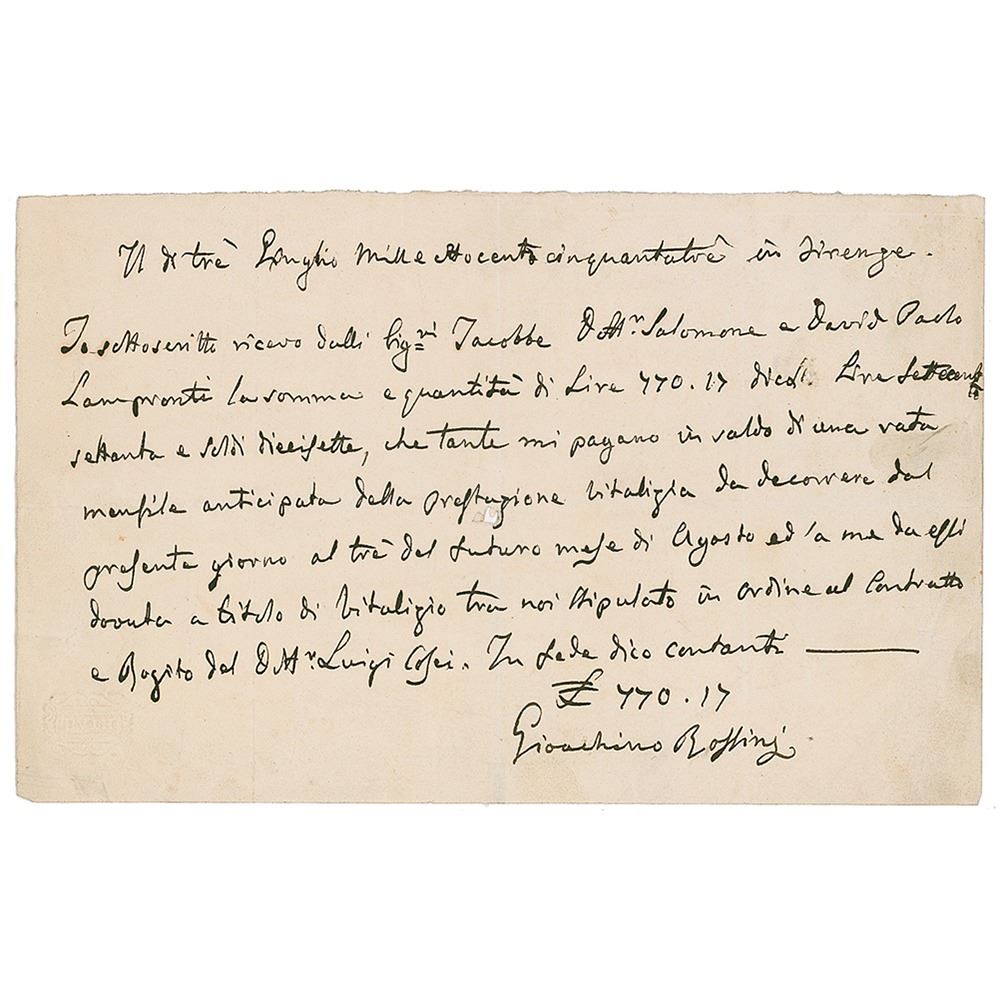 Il dì trè Luglio Mille ottocento cinquantatrè in Firenze.
Io sottoscritto ricevo dalli Sig.ri Jacobbe Dott.r Salomone e David Paolo
Lampronti la somma e quantità di Lire 770.17 dico Lire Settecento
settanta e soldi diecisette, che tante mi pagano in saldo di una rata
mensile anticipata della prestazione Vitalizia da decorrere dal
presente giorno al trè del futuro mese di Agosto ed a me da essi
dovuta a titolo di Vitalizio tra noi stipulato in ordine al Contratto
e Rogito del Dott.r Luigi Cosci. In fede dico contanti
£ 770.17
Gioachino Rossini